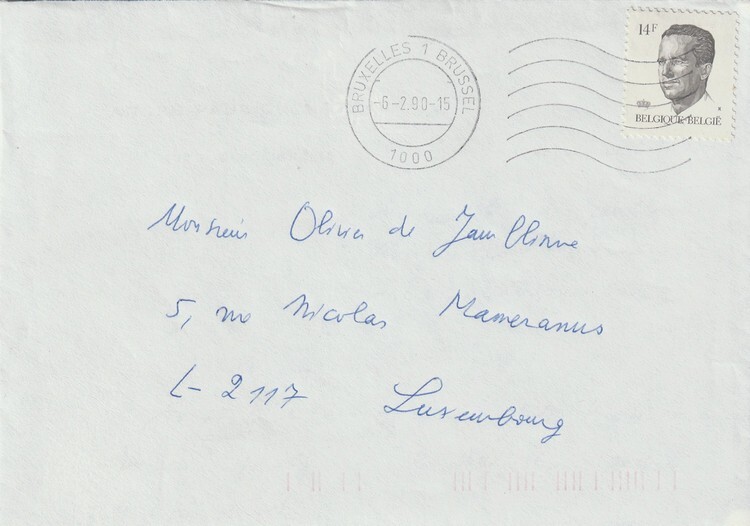 BRUXELLES 1 BRUSSEL
-6-2.90-15
1000
14F
BELGIQUE-BELGIË
Monsieur Olivier de
5, rue Nicolas Mameranus
L-2117 Luxembourg